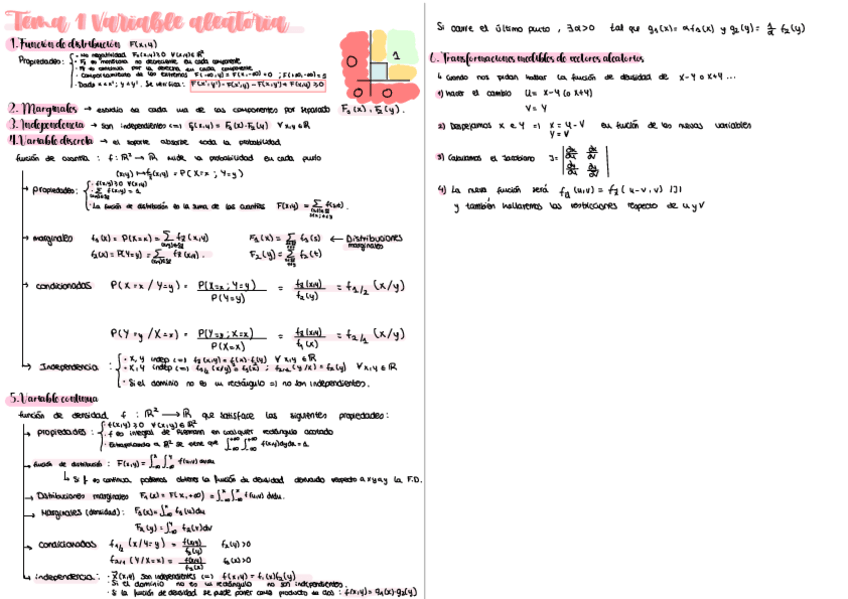 Tema 1 Variable aleatoria
1. Función de distribución F(x,y)
Propiedades:
· No negatividad F₂(x,y) ≥ 0 ∀(x,y) ∈ ℝ²
· F₂ es monótona no decreciente en cada componente
· F₂ es continua por la derecha en cada componente
· Comportamiento de los extremos F(-∞,y) = F(x,-∞) = 0 ; F(+∞,+∞) = 1
· Dados x<x' ; y<y'. Se verifica: F(x',y') - F(x',y) - F(x,y') + F(x,y) ≥ 0
0 1
0 0
2. Marginales → estudio de cada una de las componentes por separado F₁(x), F₂(y).
3. Independencia → son independientes <=> F₂(x,y) = F₁(x)·F₂(y) ∀ x,y ∈ ℝ
4. Variable discreta → el soporte absorbe toda la probabilidad
función de cuantía : f: ℝ² → ℝ mide la probabilidad en cada punto
(x,y) ↦ f₂(x,y) = P(X=x ; Y=y)
→ propiedades:
· f(x,y) ≥ 0 ∀(x,y)
· Σ f(x,y) = 1
· La función de distribución es la suma de las cuantías F(x,y) = Σ f(s,t).
→ marginales f₁(x) = P(X=x) = Σ f₂(x,y) F₁(x) = Σ f₁(s) ← Distribuciones marginales
f₂(x) = P(Y=y) = Σ f₂(x,y). F₂(y) = Σ f₂(t)
→ condicionadas P(X=x / Y=y) = P(X=x ; Y=y) / P(Y=y) = f₂(x,y) / f₂(y) = f₁/₂ (x/y)
P(Y=y / X=x) = P(Y=y ; X=x) / P(X=x) = f₂(x,y) / f₁(x) = f₂/₁ (x/y)
→ Independencia :
· x,y indep <=> f₂(x,y) = f₁(x)·f₂(y) ∀ x,y ∈ ℝ
· x,y indep <=> f₁/₂(x/y) = f₁(x) ; f₂/₁(y/x) = f₂(y) ∀ x,y ∈ ℝ
· Si el dominio no es un rectángulo => no son independientes.
5. Variable continua
función de densidad f : ℝ² → ℝ que satisface las siguientes propiedades:
→ propiedades:
· f(x,y) ≥ 0 ∀(x,y) ∈ ℝ²
· f es integral de Riemann en cualquier rectángulo acotado
· Extrapolando a ℝ² se tiene que ∫∫ f(x,y)dydx = 1
→ función de distribución : F(x,y) = ∫∫ f(u,v) dvdu
↳ Si f es continua podemos obtener la función de densidad derivando respecto a x y a y la F.D.
→ Distribuciones marginales F₁(x) = F(x,+∞) = ∫∫ f(u,v) dvdu.
→ Marginales (densidad) : F₁(x) = ∫ f₁(u)du
F₂(y) = ∫ f₂(v)dv
→ condicionadas f₁/₂ (x/Y=y) = f(x,y) / f₂(y) f₂(y) > 0
f₂/₁ (Y/X=x) = f(x,y) / f₁(x) f₁(x) > 0
→ independencia : · X(x,y) son independientes <=> f(x,y) = f₁(x)f₂(y)
· Si el dominio no es un rectángulo no son independientes.
· Si la función de densidad se puede poner como producto de dos : f(x,y) = g₁(x)·g₂(y)
Si ocurre el último punto , ∃ a>0 tal que g₁(x) = a f₁(x) y g₂(y) = 1/a f₂(y)
6. Transformaciones medibles de vectores aleatorios
↳ Cuando nos pidan hallar la función de densidad de X-Y o X+Y ...
1) Hacer el cambio U = X-Y (o X+Y)
V = Y
2) Despejamos X e Y => X = U-V Y = V en función de las nuevas variables
3) Calculamos el Jacobiano J = | ∂x/∂u ∂x/∂v ∂y/∂u ∂y/∂v |
4) La nueva función será f₂(u,v) = f₂(u-v,v) |J|
y también hallaremos las restricciones respecto de u y v